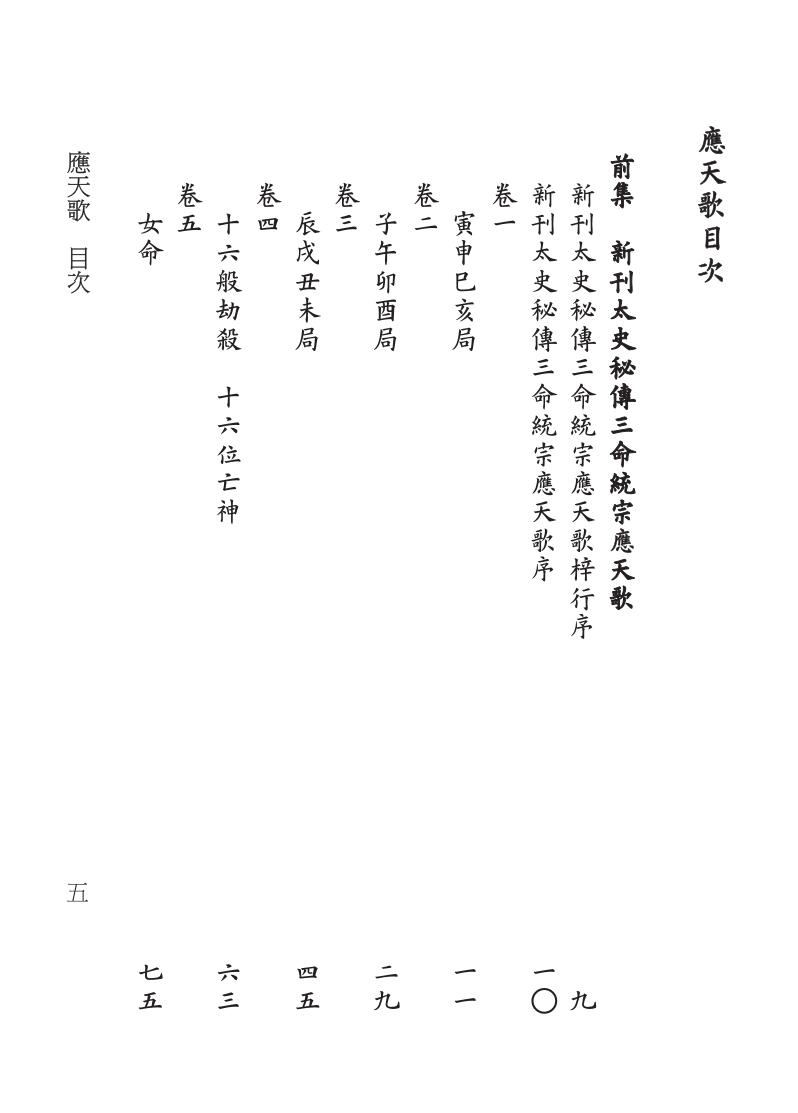 應天歌目次
前集　新刊太史秘傳三命統宗應天歌
新刊太史秘傳三命統宗應天歌梓行序　九
新刊太史秘傳三命統宗應天歌序　一〇
卷一
寅申巳亥局　一一
卷二
子午卯酉局　二九
卷三
辰戌丑未局　四五
卷四
十六般劫殺　十六位亡神　六三
卷五
女命　七五
應天歌　目次　五